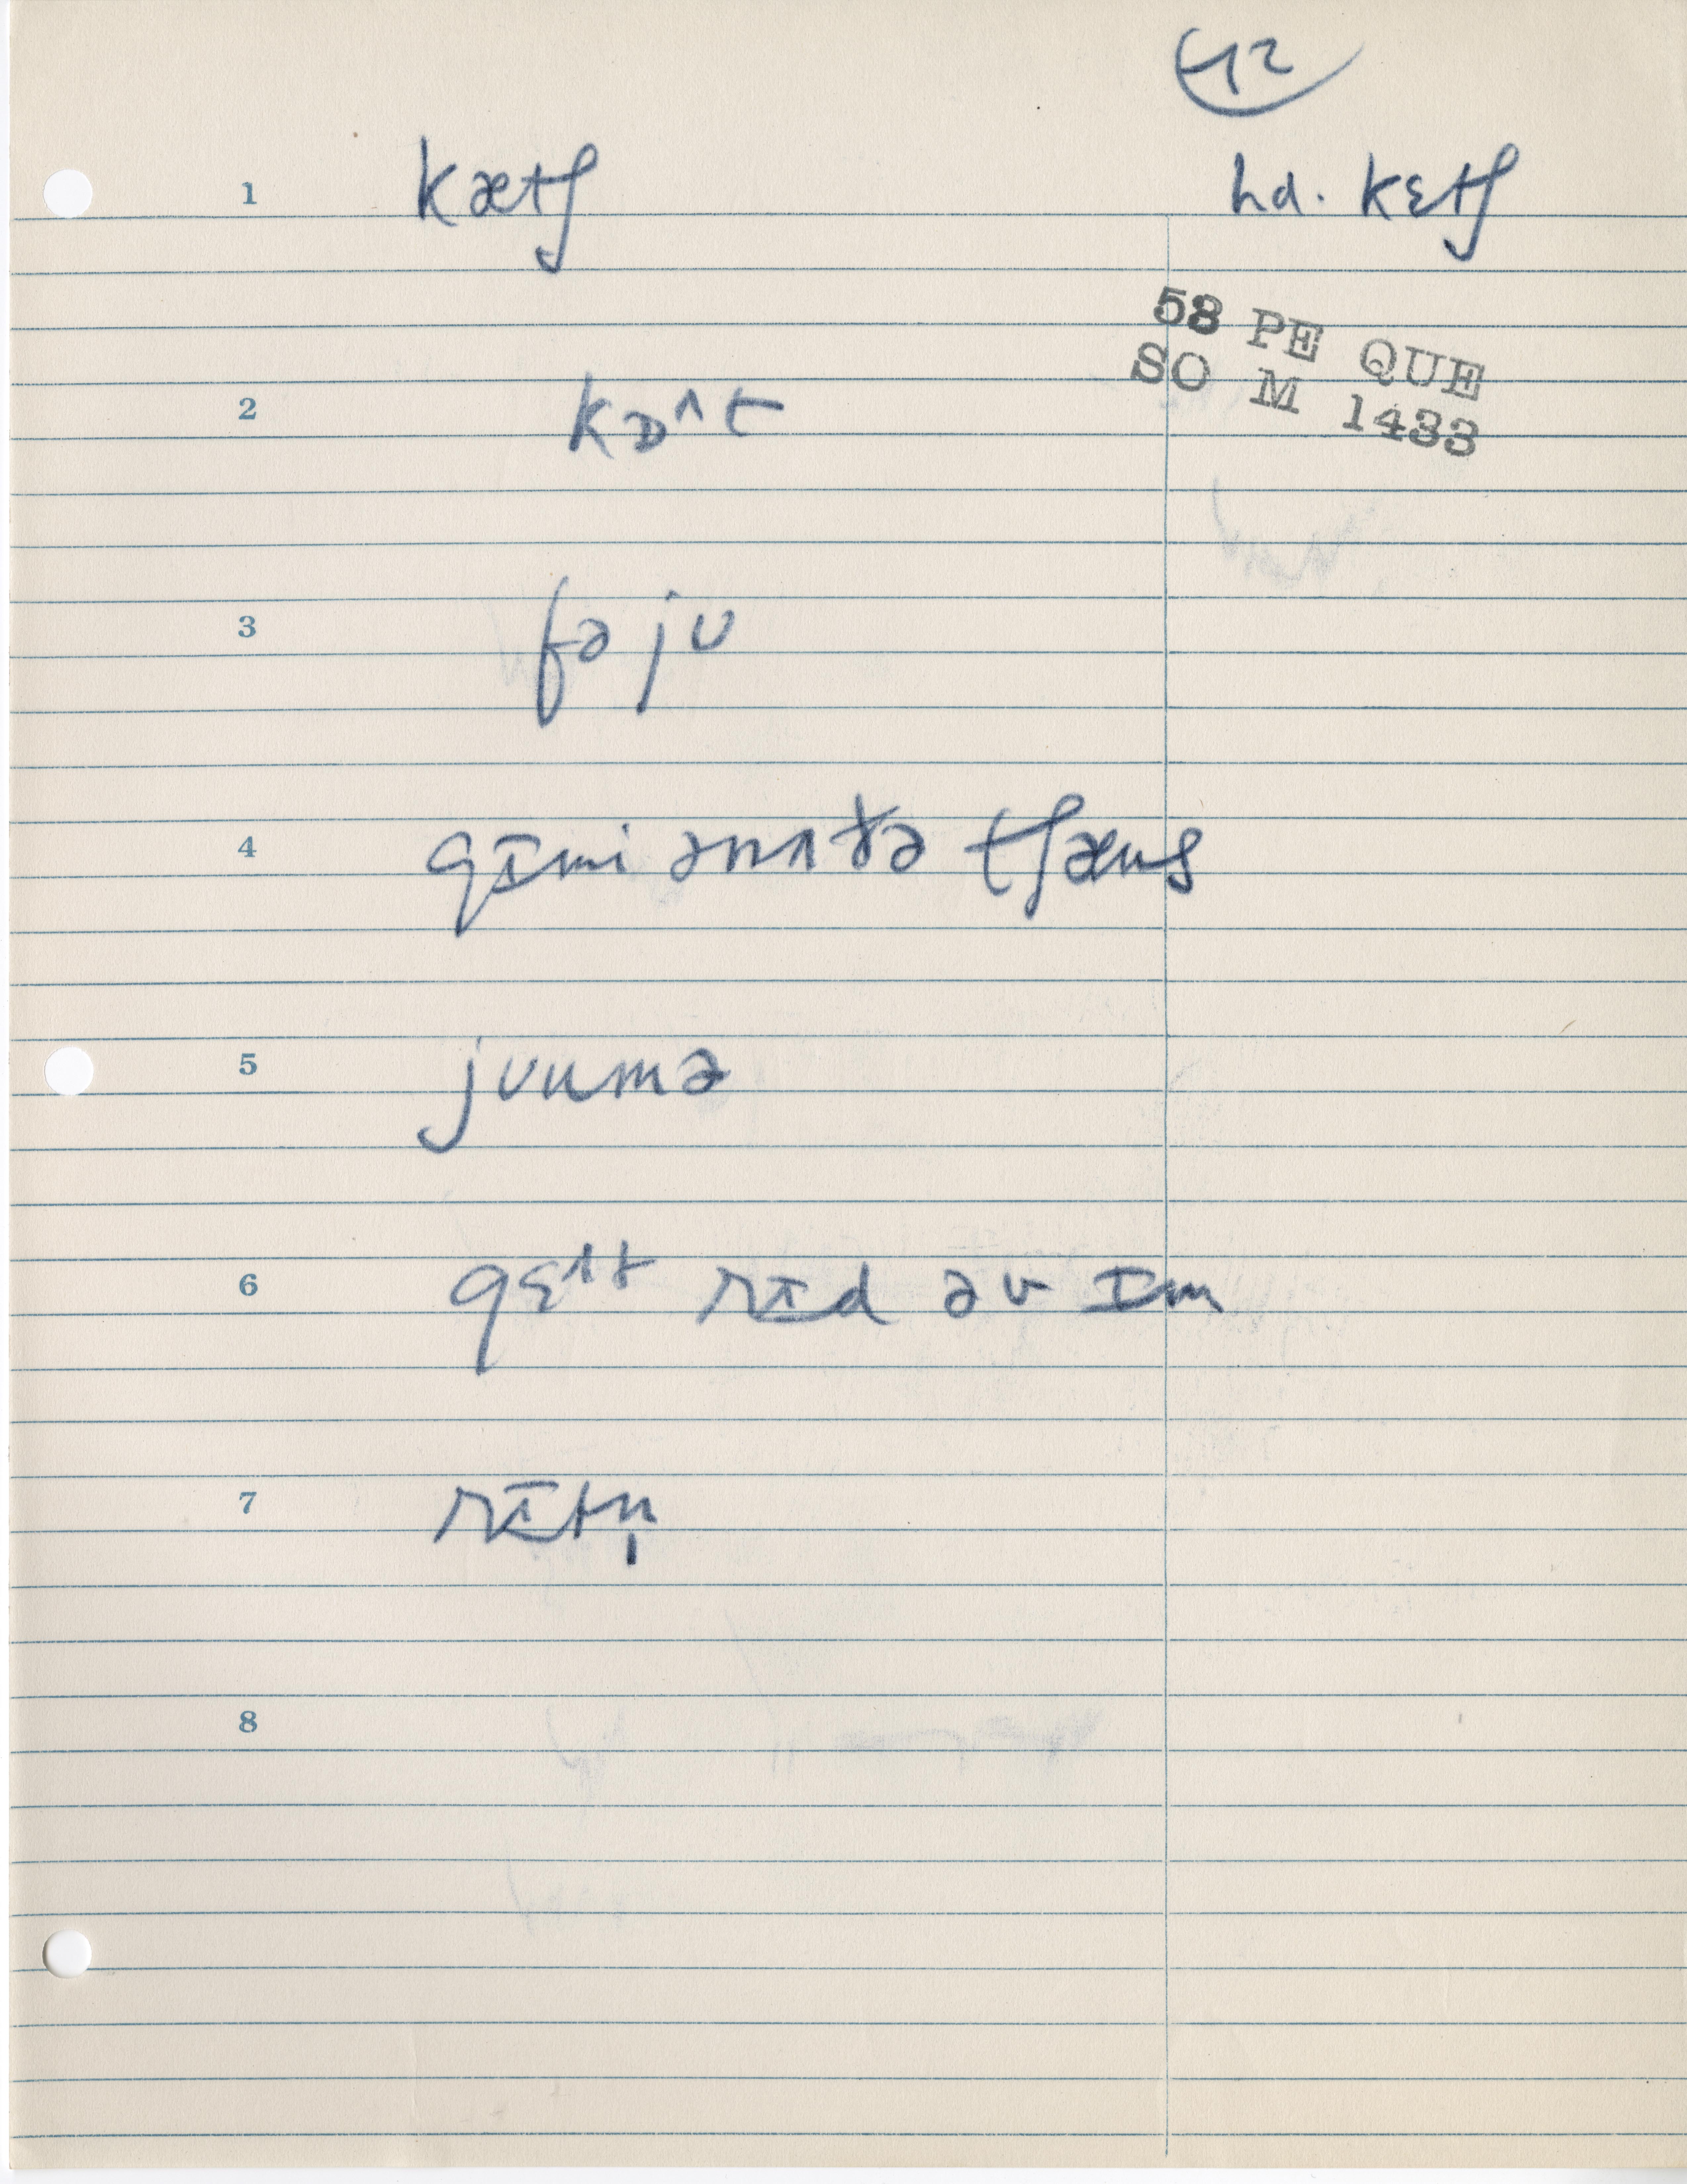 42
1 kætʃ hd. kɛtʃ
58 PE QUE
SO M 1433
2 kɒ^t
3 fə ju
4 gɪmi ənʌðə tʃæns
5 junmə
6 gɛ^t rɪd əv ɪm
7 rɪtn̩
8